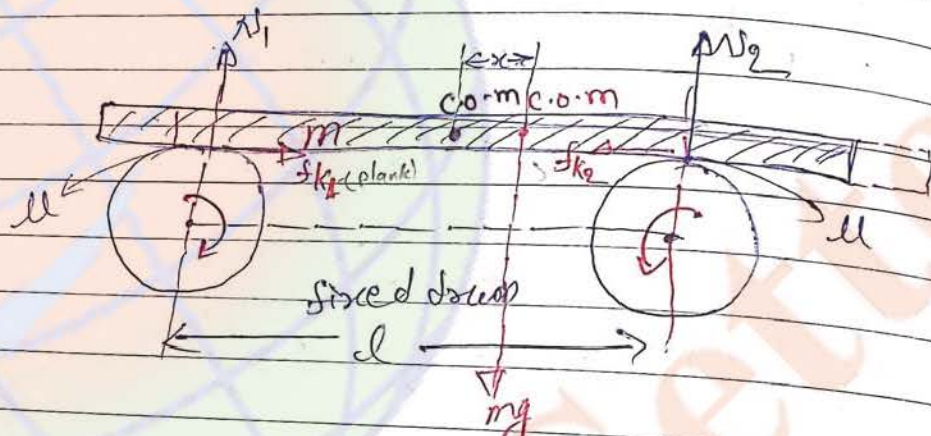 N₁
N₂
x
c.o.m c.o.m
m
fk₁ (plank)
fk₂
μ
μ
fixed drum
l
mg